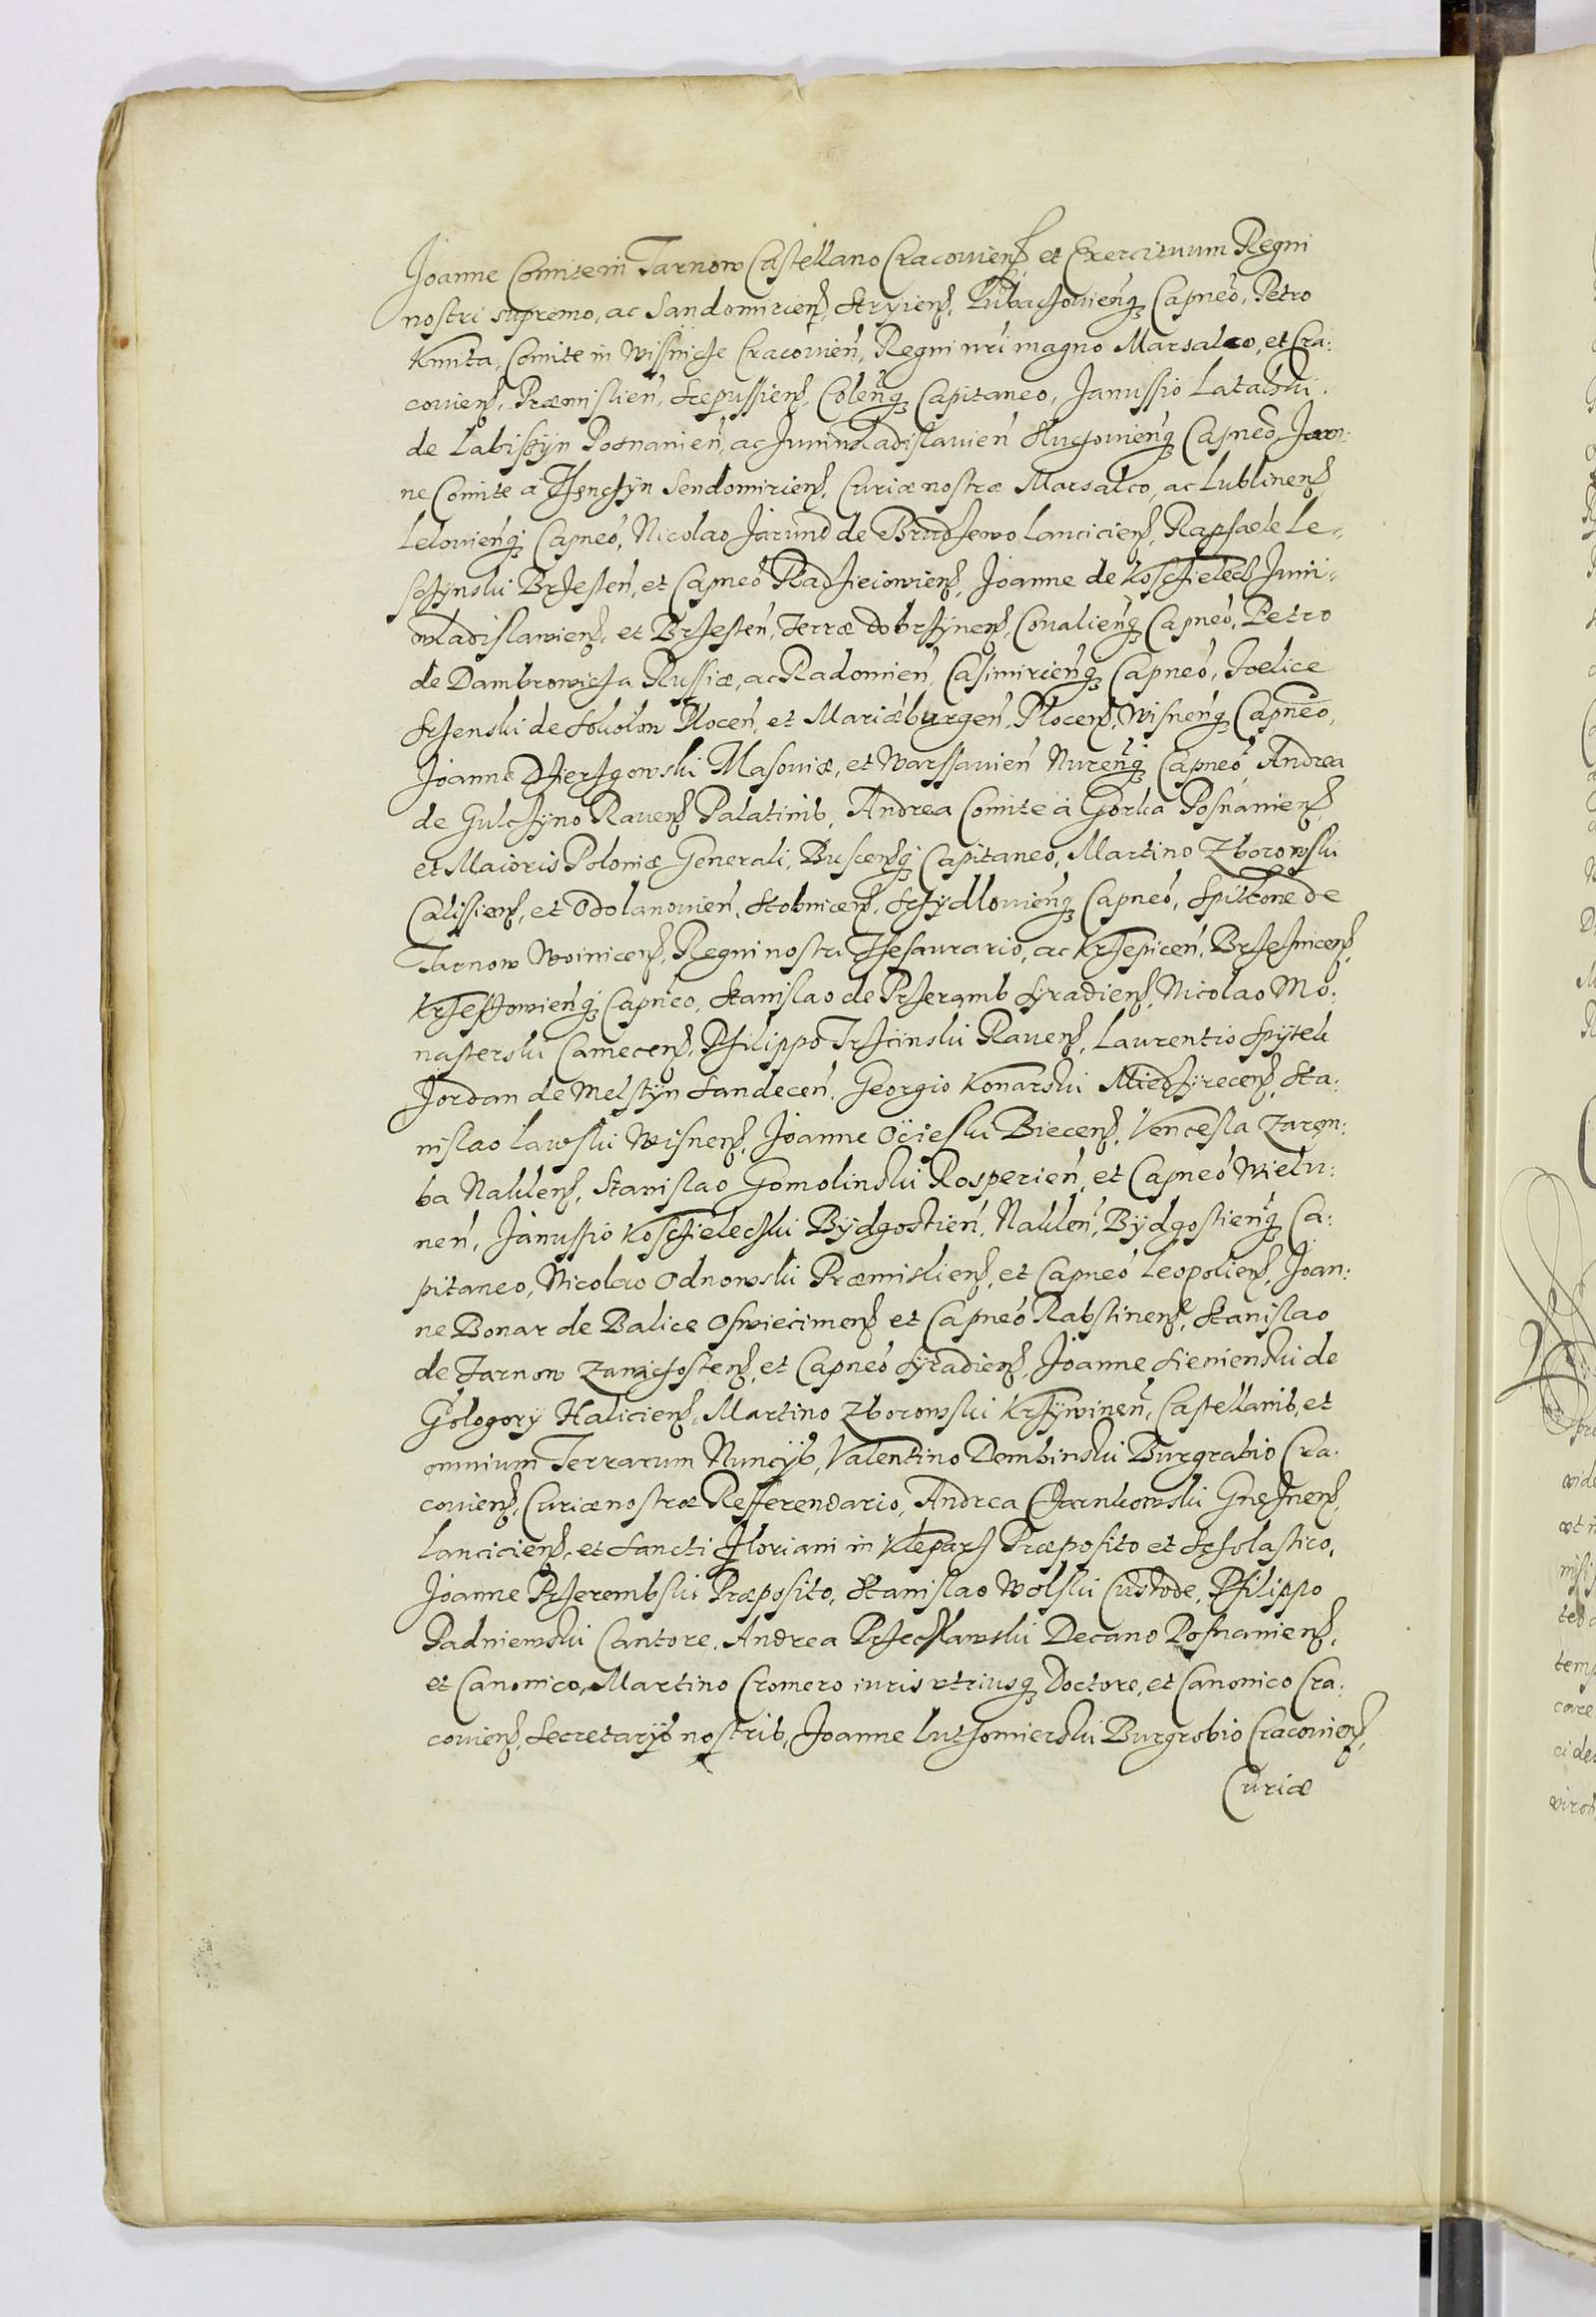 Joanne Comite in Tarnow Castellano Cracouiens. et Exercituum Regni
nostri supremo, ac Sandomiriens, Stryiens, Lubaczouienq3 Capneo, Petro
Kmita, Comite in Wissnicze Cracouien, Regni nri magno Marsalco, et Cra:
couiens, Præmislien, Scepussiens, Colenq3 Capitaneo, Janussio Latalski
de Labiszÿn Posnanien, ac Juniuuladislauien Sluchouienq3 Capneo, Joan:
ne Comite a Thenczÿn Sendomiriens, Curiæ nostræ Marsalco, ac Lublinens
Lelouienq3 Capneo, Nicolao Jarund de Brudzewo Lanciciens, Raphaele Le-
sczÿnski Brzesten, et Capneo Radzieiowiens, Joanne de Kosczielecz Juni-
wladislawiens, et Brzesten, Terræ dobrzÿnens, Coualienq3 Capneo, Petro
de Dambrowicza Russiæ, ac Radomien, Casimirienq3 Capneo, Foelice
Srzenski de Sokolow Plocen, et Mariæburgen, Plocens, Wisnenq3 Capneo,
Joanne Dzierzgowski Masouiæ, et Warssauien Nurenq3 Capneo, Andrea
de Gulczÿno Rauens Palatinis, Andrea Comite á Gorka Posnaniens,
et Maioris Poloniæ Generali, Buscensq3 Capitaneo, Martino Zborowski
Calissiens, et Odolanouien, Stobnicens, Schÿdlouienq3 Capneo, Spitkone de
Tarnow Woinicens, Regni nostri Thesaurario, ac Krzepicen, Brzeznicens,
Krzessowienq3 Capneo, Stanislao de Przeramb Syradiens, Nicolao Mo:
nasterski Camecens, Philippo Trzcinski Rauens, Laurentio Spÿtek
Jordan de Melstÿn Sandecen. Georgio Konarski Miedzÿrecens, Sta:
nislao Lawski Wisnens, Joanne Ocieski Biecens, Venceslao Zarem:
ba Naklens, Stanislao Gomolinski Rosperien, et Capneo Wielu:
nen, Janussio Kosczieleczki Bÿdgostien, Naklen, Bÿdgostienq3 Ca:
pitaneo, Nicolao Odnowski Præmisliens, et Capneo Leopoliens, Joan:
ne Bonar de Balice Oswiecimens et Capneo Rabstinens, Stanislao
de Tarnow Zawichostens, et Capneo Syradiens, Joanne Sienienski de
Gologorÿ Haliciens, Martino Zborowski Krzÿwinen, Castellanis, et
omnium Terrarum Nuncÿs, Valentino Dembinski Burgrabio Cra:
couiens, Curiæ nostræ Refferendario, Andrea Czarnkowski Gneznens,
Lanciciens, et Sancti Floriani in Kleparz Præposito et Scholastico,
Joanne Przerembski Præposito, Stanislao Wolski Custode, Philippo
Padniewski Cantore, Andrea Przeczlawski Decano Posnaniens,
et Canonico, Martino Cromero iuris vtriusq3 Doctore, et Canonico Cra:
couiens, Secretarÿs nostris, Joanne Luthomierski Burgrabio Cracouiens,
Curiæ